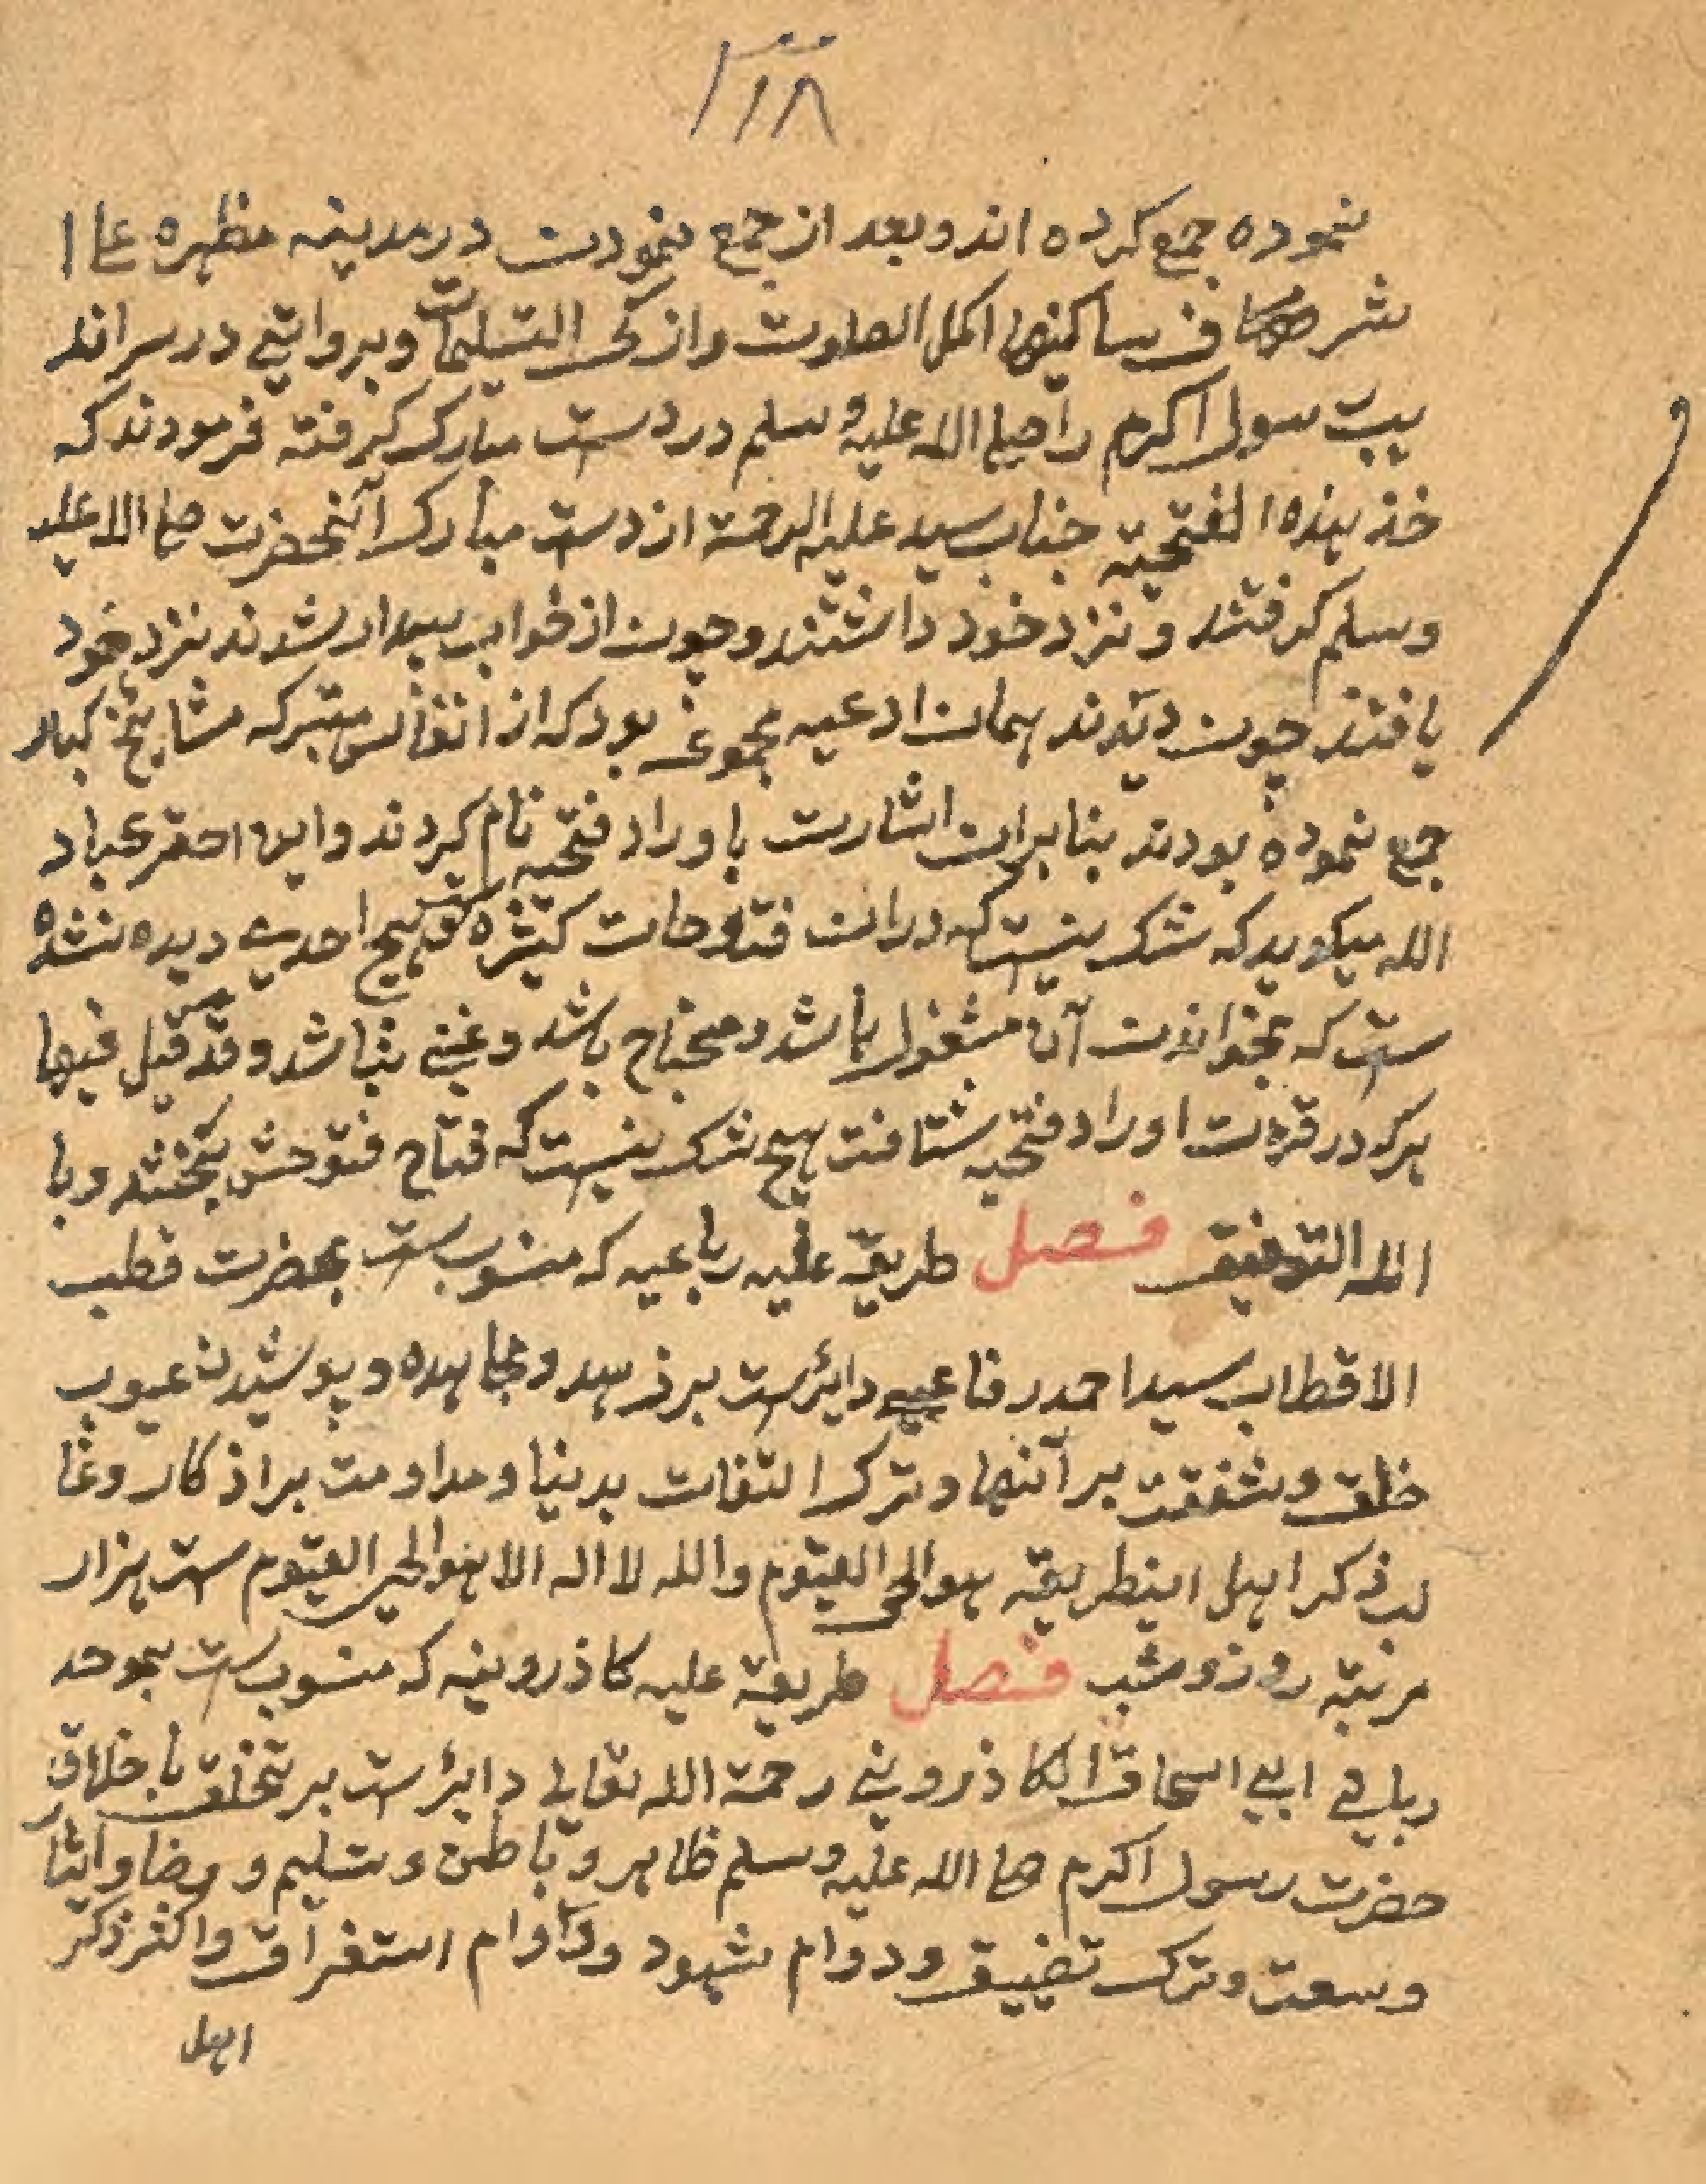 ۱۱۸
نموده جمع کرده اند و بعد از جمع نمودن در مدینه مطهره علی ا
شرف ساکنها اکمل الصلوت وازکی التسلیمات وبروایتی در سراند
یب رسول اکرم را صلی الله علیه وسلم در دست مبارک گرفته فرمودند که
خذ هذه الفتحیة جناب سید علیه الرحمة از دست مبارک آنحضرت صلی الله علیه
وسلم گرفتند و نزد خود داشتند و چون از خواب بیدار شدند نزد خود
یافتند چون دیدند همان ادعیه مجموعی بود که از انفاس متبرکه مشایخ کبار
جمع نموده بودند بنا بران اشارت باوراد فتحیه نام کردند و این احقر عباد
الله میگوید که شک نیست که در ان فتوحات کثیره ست هیچ احدی دیده نشده
ست که بخواندن آن مشغول باشد و محتاج باشد و غنی نباشد و قد قیل فیها
هرکه در قرءت اوراد فتحیه شتافت هیچ شک نیست که فتاح فتوحش بخشد وبا
الله التوفیق فصل طریقه علیه رباعیه که منسوب ست بحضرت قطب
الاقطاب سید احمد رفاعی دایرست بر زهد و مجاهده و پوشیدن عیوب
خلق و شفقت بر آنها و ترک التفات بدنیا و مداومت بر اذکار و غا
لب ذکر اهل اینطریقه هو الحی القیوم والله لا اله الا هو الحی القیوم ست هزار
مرتبه روز و شب فصل طریقه علیه کاذرونیه که منسوب ست بموحد
ربانی ابی اسحاق الکاذرونی رحمة الله تعالی دایرست بر تخلق باخلاق
حضرت رسول اکرم صلی الله علیه وسلم ظاهر و باطن و تسلیم و رضا و ایثار
وسعت و ترک تضییق و دوام شهود و دوام استغراق و اکثر ذکر
اهل